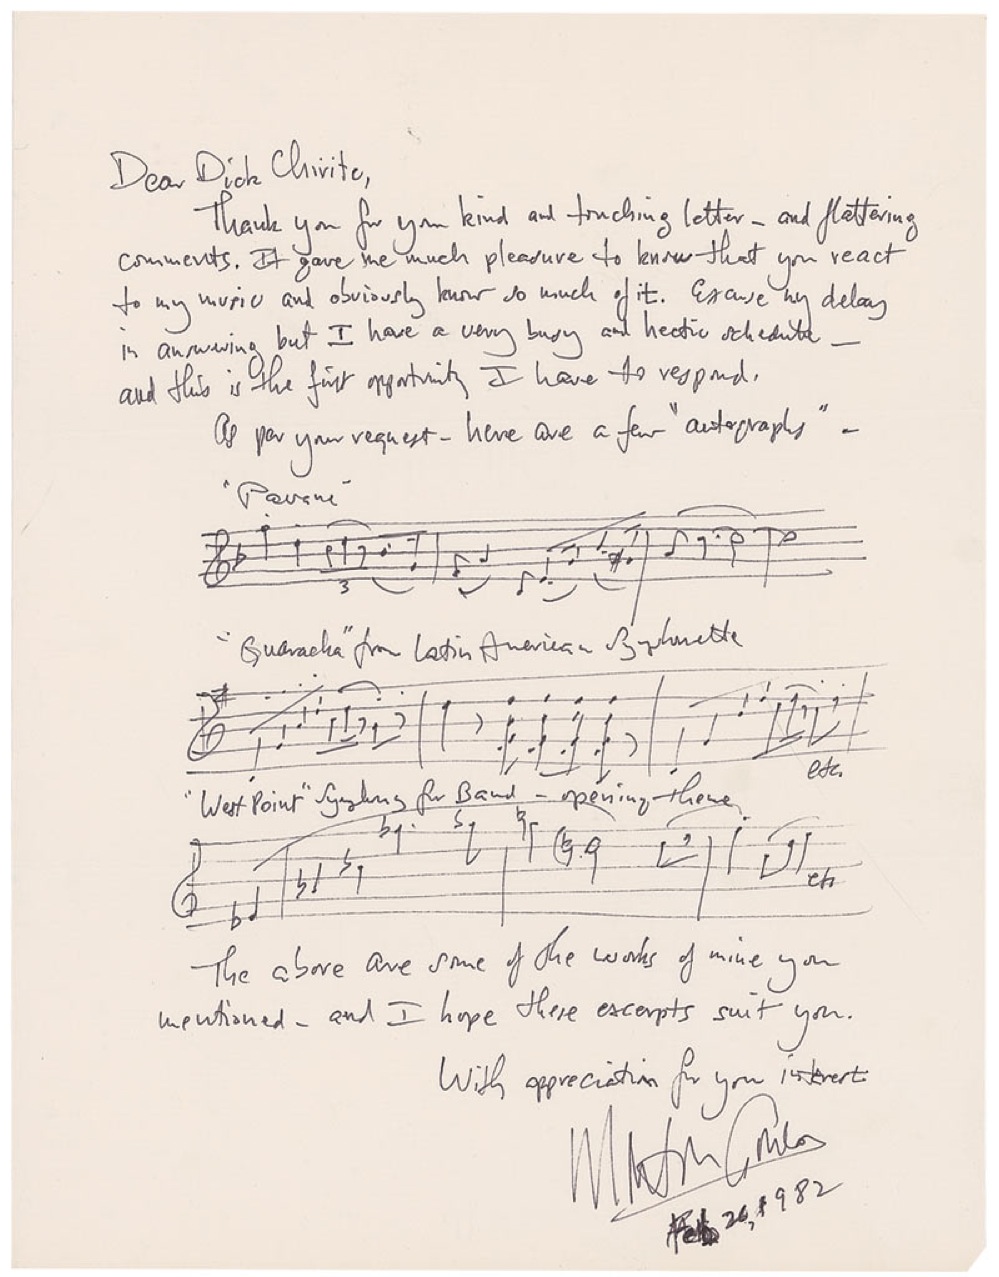 Dear Dick Chivite,
Thank you for your kind and touching letter – and flattering
comments. It gave me much pleasure to know that you react
to my music and obviously know so much of it. Excuse my delay
in answering but I have a very busy and hectic schedule –
and this is the first opportunity I have to respond.
As per your request – here are a few "autographs" –
"Pavane"
3
"Guaracha" from Latin American Symphonette
etc.
"West Point" Symphony for Band – opening theme
etc
The above are some of the works of mine you
mentioned – and I hope these excerpts suit you.
With appreciation for your interest
Morton Gould
Feb 26, 1982